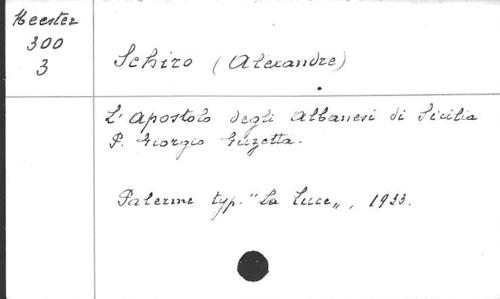 Meester
300
3
Schiro (Alexandre)
L'Apostolo degli Albanesi di Sicilia
P. Giorgio Guzetta.
Palerme typ. "La Luce„, 1933.